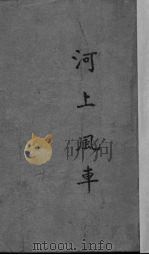 河上風車
研狗
www.mtoou.info